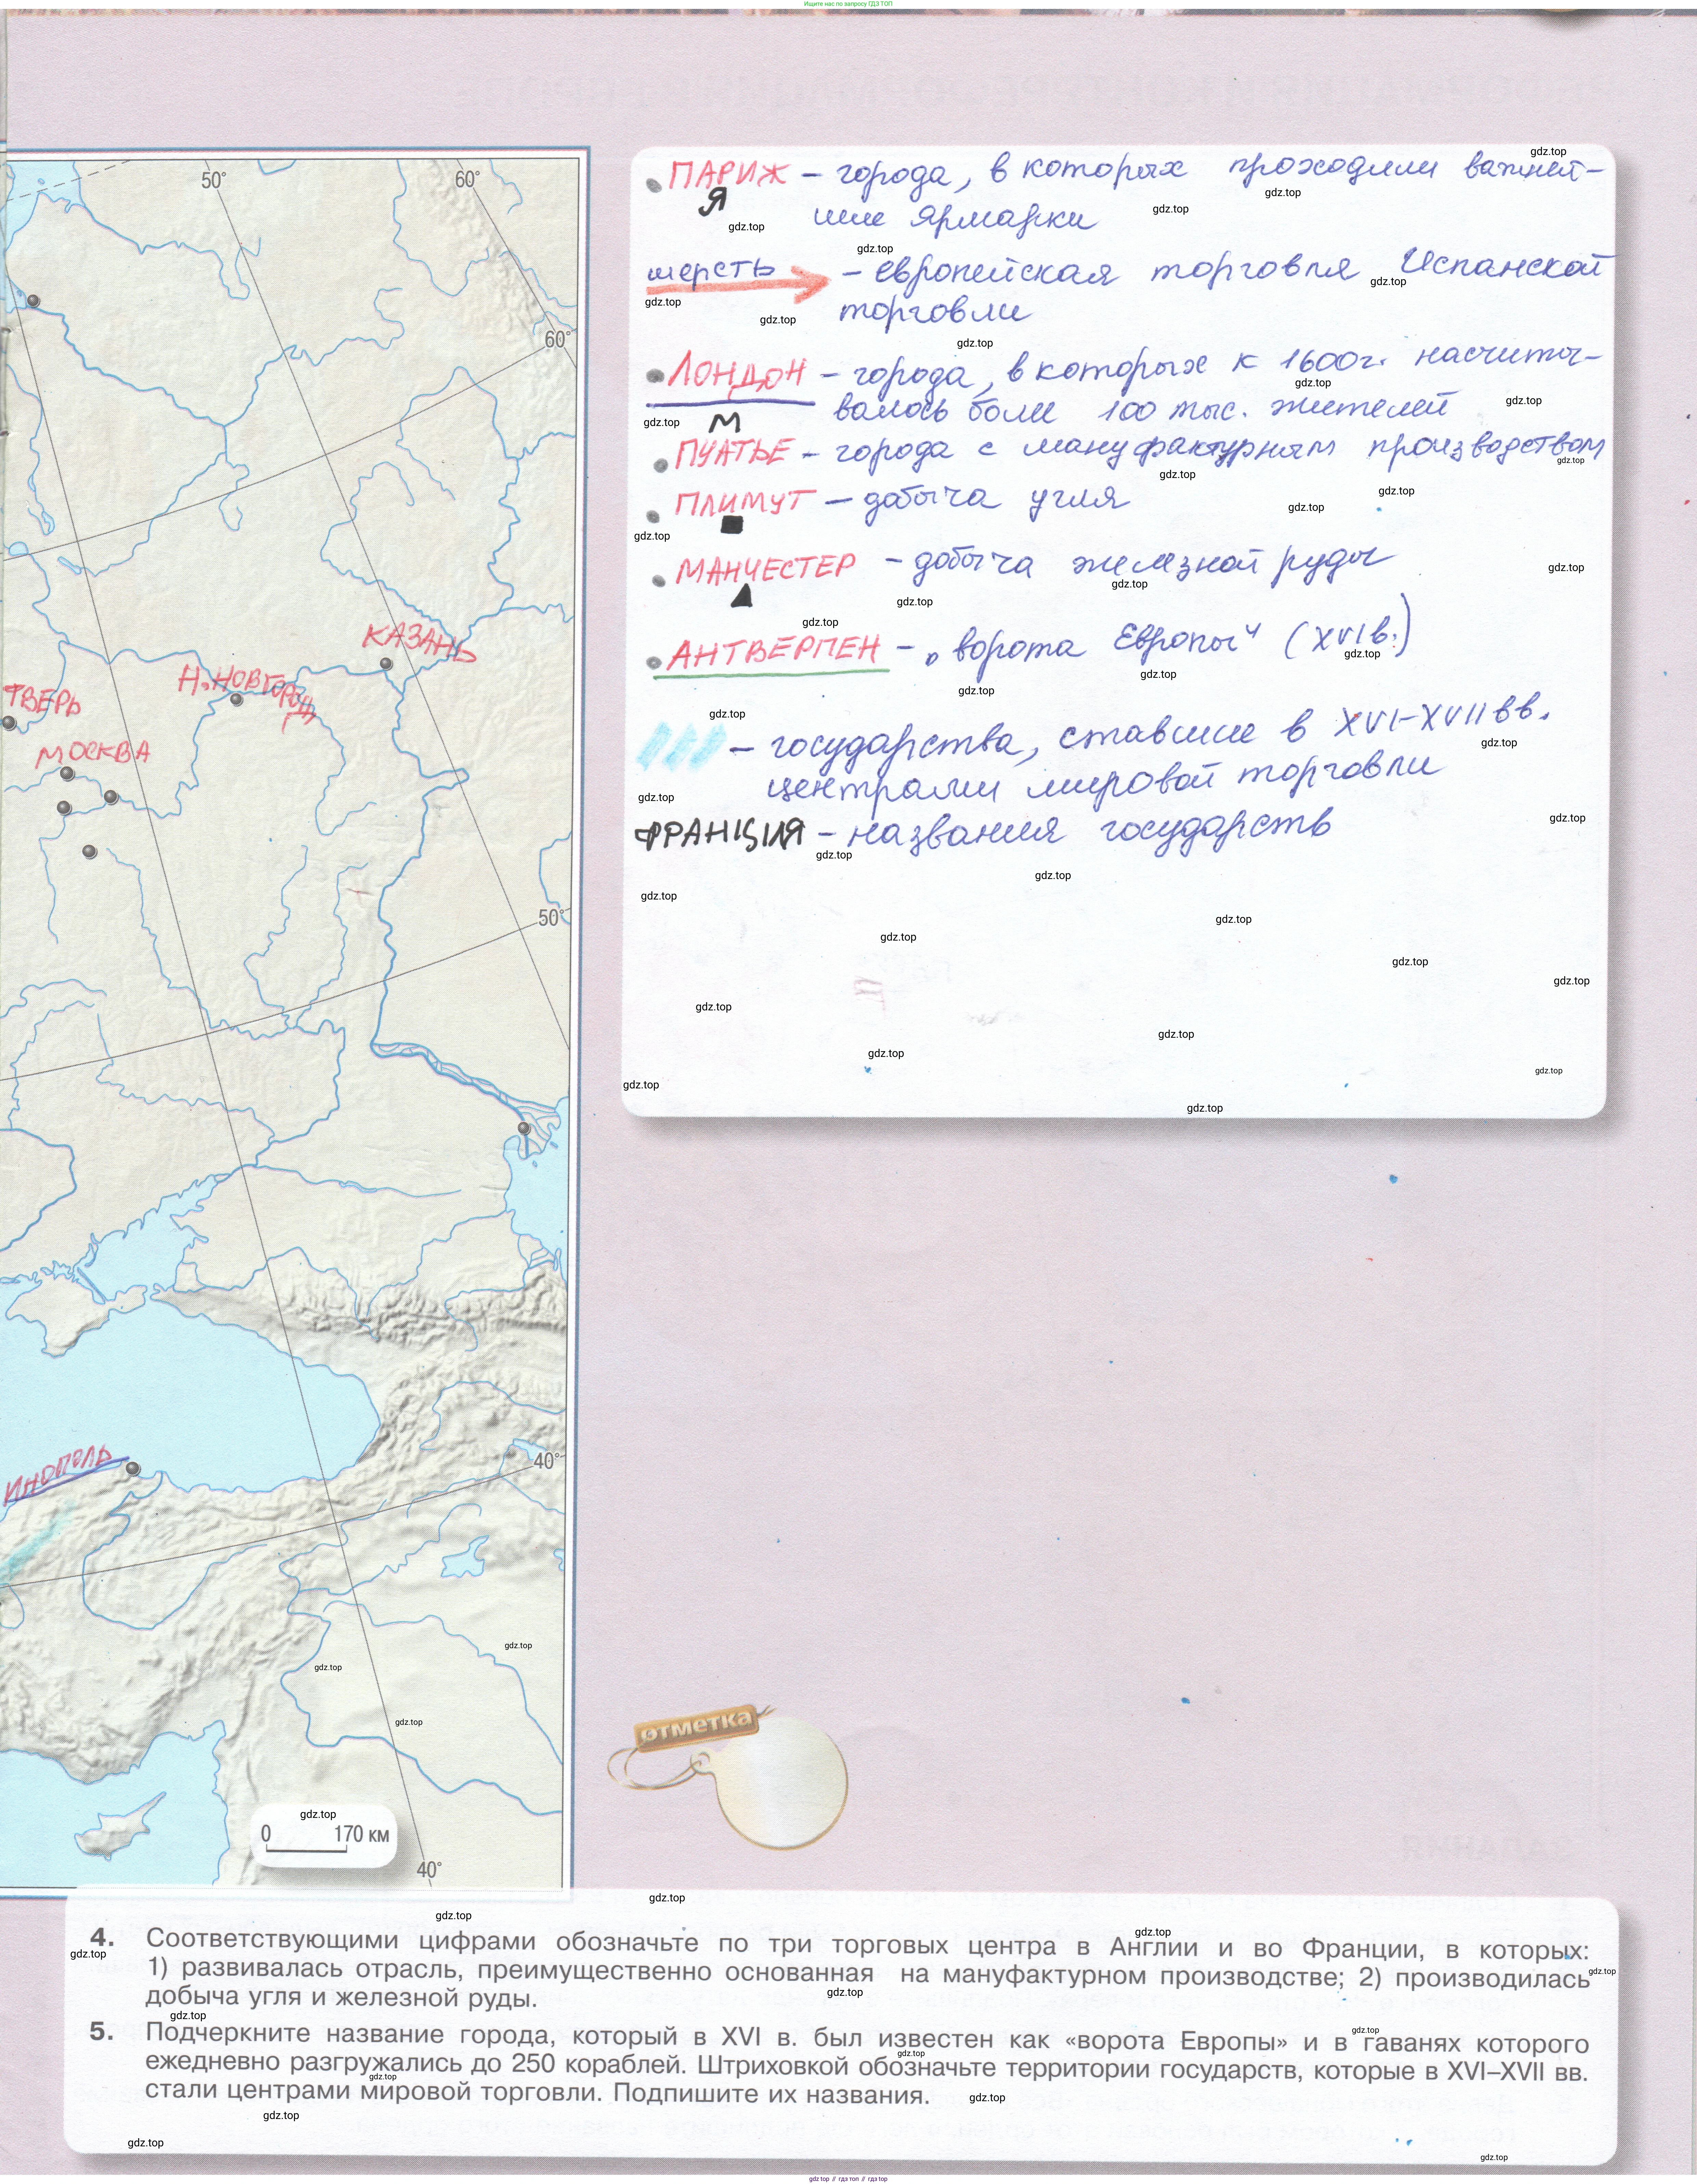 Ищите нас по запросу ГДЗ ТОП
50°
60°
60°
КАЗАНЬ
Н.НОВГОРОД
ТВЕРЬ
МОСКВА
50°
ИНОПОЛЬ
40°
0 170 км
40°
ПАРИЖ – города, в которых проходили важней-
Я
шие ярмарки
шерсть – европейская торговля Испанской
торговли
ЛОНДОН – города, в которых к 1600г. насчиты-
валось боли 100 тыс. жителей
М
ПУАТЬЕ – города с мануфактурным производством
ПЛИМУТ – добыча угля
МАНЧЕСТЕР – добыча железной руды
АНТВЕРПЕН – „ворота Европы" (XVIв.)
– государства, ставшие в XVI–XVII вв.
центрами мировой торговли
ФРАНЦИЯ – названия государств
отметка
4. Соответствующими цифрами обозначьте по три торговых центра в Англии и во Франции, в которых:
1) развивалась отрасль, преимущественно основанная на мануфактурном производстве; 2) производилась
добыча угля и железной руды.
5. Подчеркните название города, который в XVI в. был известен как «ворота Европы» и в гаванях которого
ежедневно разгружались до 250 кораблей. Штриховкой обозначьте территории государств, которые в XVI–XVII вв.
стали центрами мировой торговли. Подпишите их названия.
gdz.top // гдз топ // гдз.top